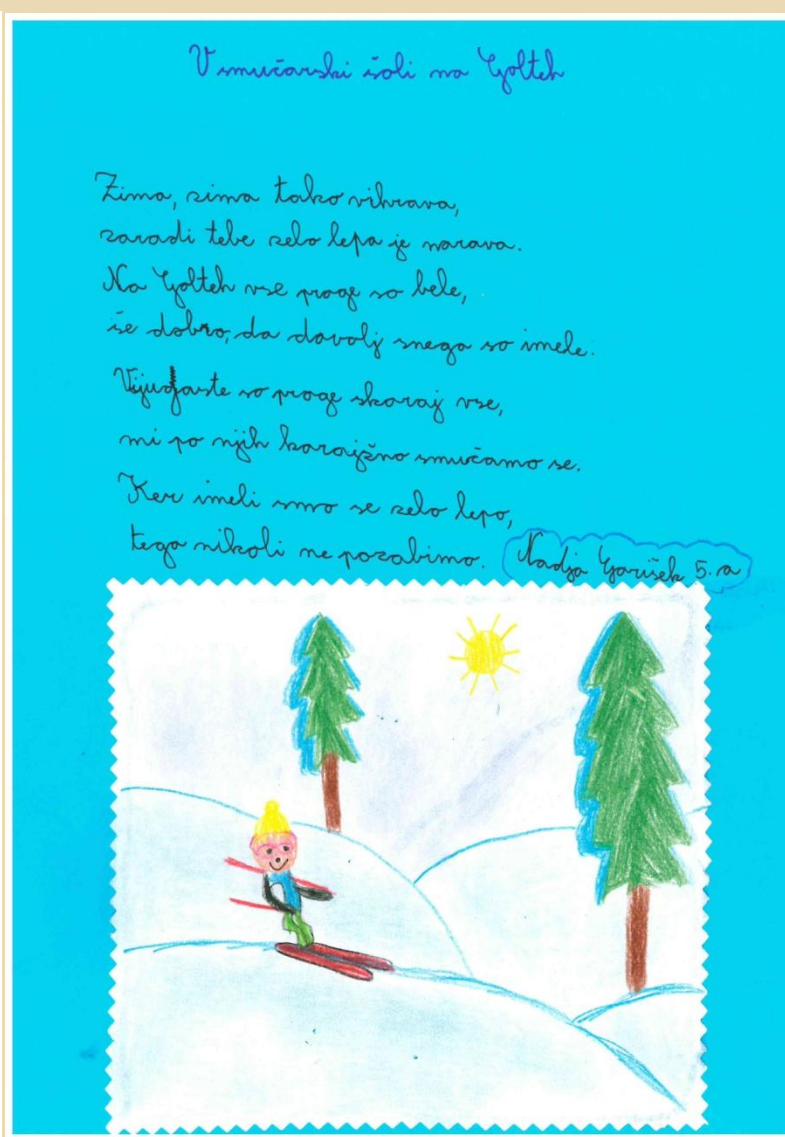 V smučarski šoli na Golteh
Zima, zima tako vihrava,
zaradi tebe zelo lepa je narava.
Na Golteh vse proge so bele,
še dobro, da dovolj snega so imele.
Vijugaste so proge skoraj vse,
mi po njih korajžno smučamo se.
Ker imeli smo se zelo lepo,
tega nikoli ne pozabimo. Nadja Garišek 5. a